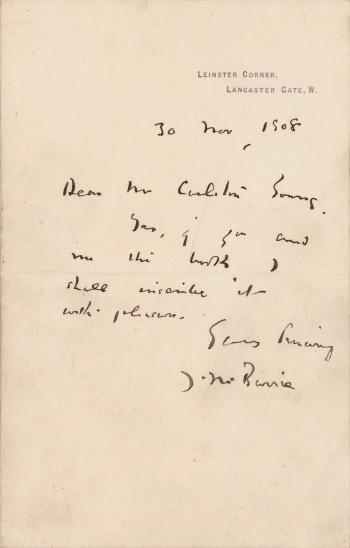 Leinster Corner,
Lancaster Gate, W.
30 Nov, 1908
Dear Mr Carleton Young.
Yes, if you send
me the book I
shall inscribe it
with pleasure.
Yours sincerely
J. M. Barrie